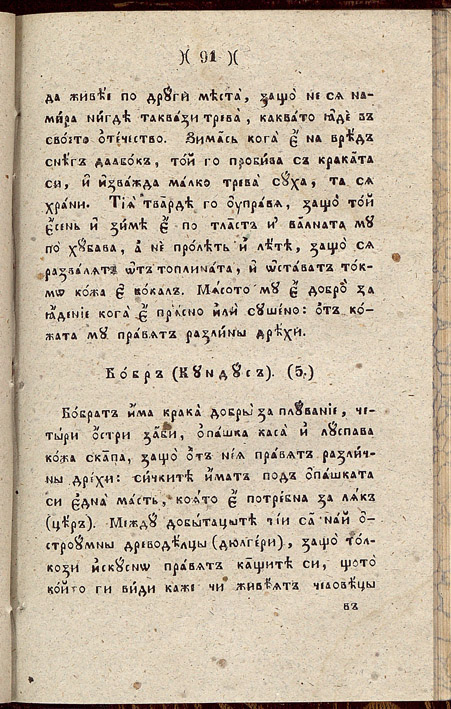 )( 91 )(
да живѣе по дрꙋги́ мѣ́ста̀, защо̀ не сѧ на-
ми́ра ни́гдѣ такваѝзи трева̀, каквато ꙗ҆дѐ въ
сво́ето ѻ҆те́чество. Зимась кога̀ є҆̀ на врѣдъ
снѣ́гъ даабокъ, то́й го проби́ва съ крака́та
си, и҆ и҆зва́жда ма́лко трева̀ сꙋ́ха, та сѧ
хра́ни. Тїѧ̀ тва́рдѣ го ѹ҆пра́вѧ, защо̀ то́й
є҆́сень и҆ зи́мѣ є҆̀ по тла́стъ и҆ ва́лната мꙋ
по̀ хꙋ́бава, а҆ нѐ про́лѣть и҆ лѣ́тѣ, защо̀ сѧ
разва́лѧтъ ѿтъ топлина́та, и҆ ѡ҆ста́ватъ то́к-
мѡ ко́жа є҆̀ во́калъ. Мѧсо́то мꙋ є҆̀ добро̀ за
ꙗ҆де́нїе кога̀ є҆̀ прѧ́сно и҆лѝ сꙋше́но: ѻ҆тъ ко́-
жата мꙋ пра́вѧтъ разли́ны дрѣ́хи.
Бо́бръ (Кꙋндꙋсъ). (5.)
Бо́братъ и҆́ма крака̀ добры̀ за плꙋ́ванїе, че-
ты́ри ѻ҆́стри за́би, ѻ҆па́шка каса̀ и҆ лꙋспава
ко́жа ска́па, защо̀ ѻ҆тъ не́ѧ пра́вѧтъ разли́ч-
ны дре́хи: си́чкитѣ и҆́матъ подъ ѻ҆па́шката
си є҆дна̀ ма́сть, коѧ́то є҆̀ потре́бна за лѧ́къ
(цѣ́ръ). Междꙋ̀ добы́тацытѣ ті́и са на́й ѻ҆-
строꙋ́мны древодѣ́лцы (дюлге́ри), защо̀ то́л-
кози и҆скꙋ́снѡ пра́вѧтъ ка́щитѣ си, щото̀
ко́йто ги ви́ди ка́же чи живѣ́ѧтъ человѣ́цы
въ